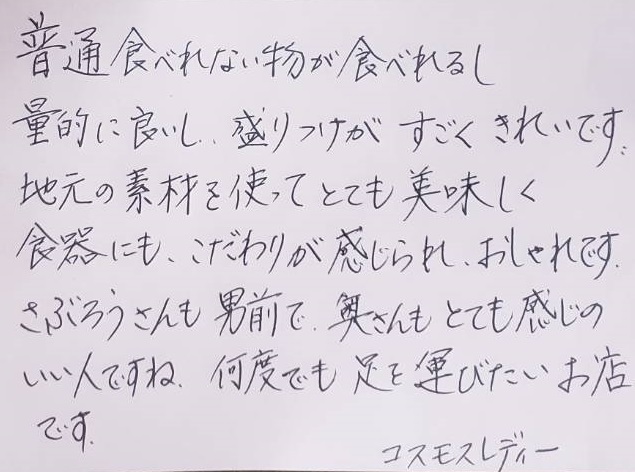 普通食べれない物が食べれるし
量的に良いし、盛りつけが すごく きれいです。
地元の素材を使って とても美味しく
食器にも、こだわりが感じられ、おしゃれです。
さぶろうさんも男前で、奥さんもとても感じの
いい人ですね。何度でも足を運びたいお店
です。
コスモスレディー